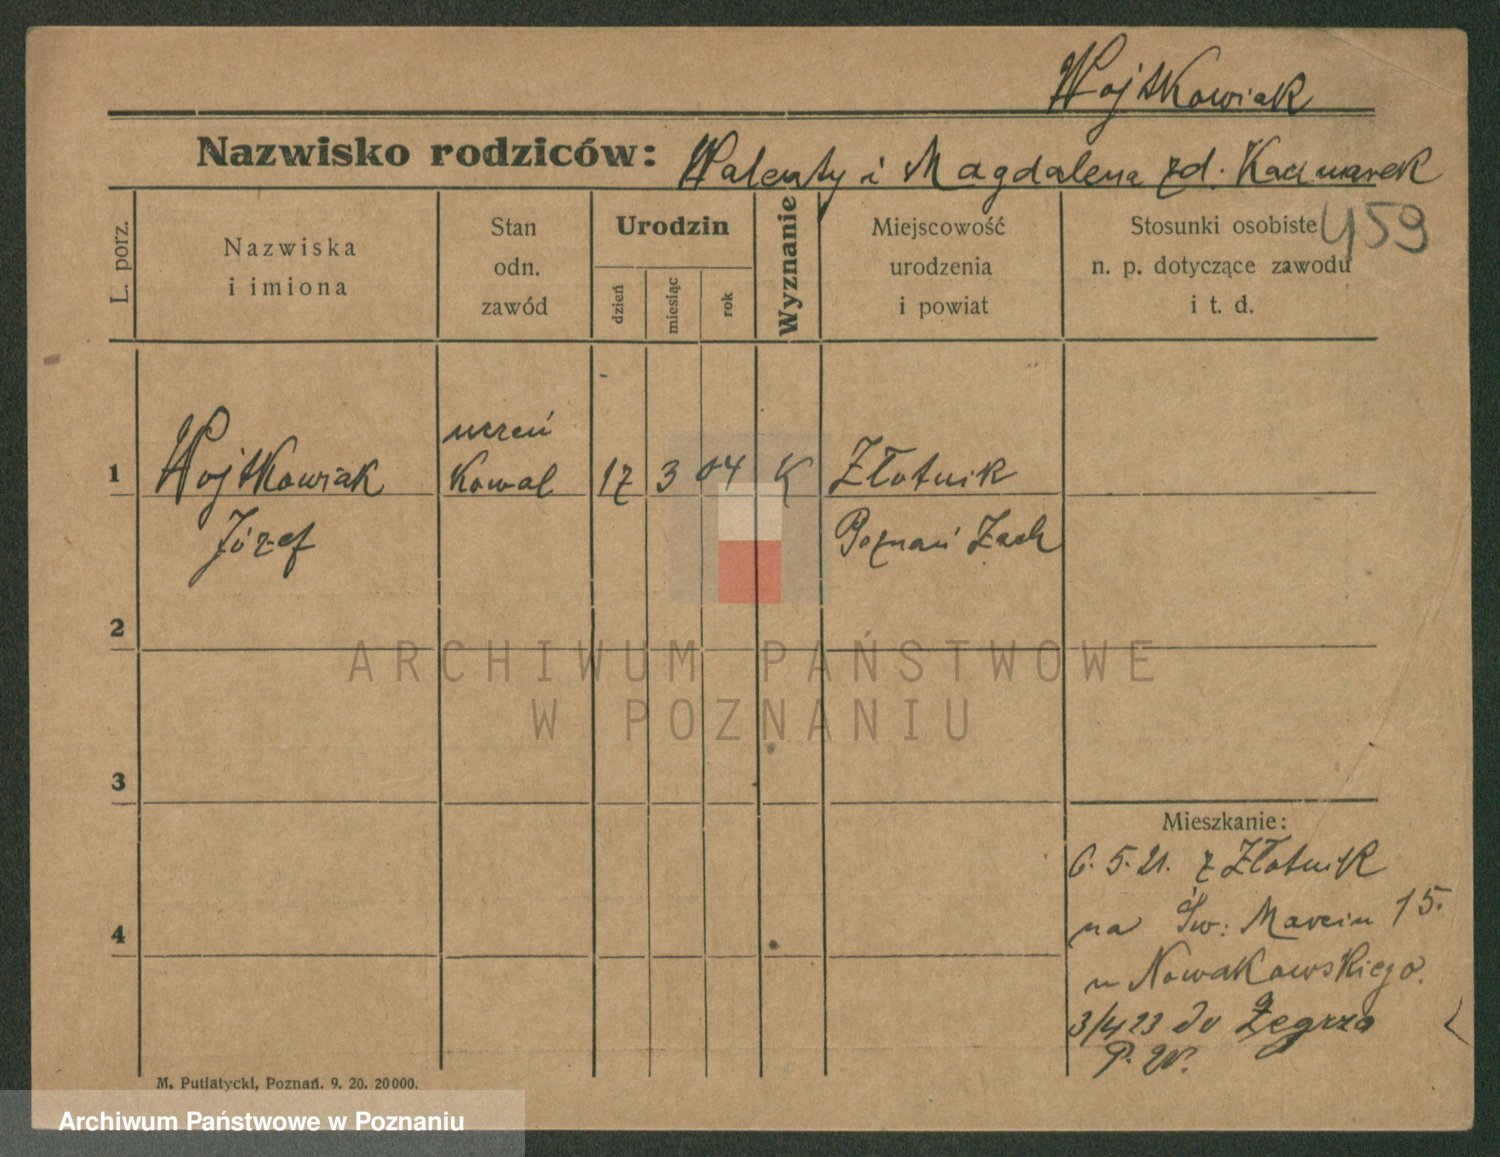 Wojtkowiak
Nazwisko rodziców: Walenty i Magdalena zd. Kaczmarek
459
L. porz.
Nazwiska
i imiona
Stan
odn.
zawód
Urodzin
dzień
miesiąc
rok
Wyznanie
Miejscowość
urodzenia
i powiat
Stosunki osobiste
n. p. dotyczące zawodu
i t. d.
uczeń
1 Wojtkowiak Kowal 17 3 04 K Złotnik
Józef Poznań Zach
2
ARCHIWUM PAŃSTWOWE
W POZNANIU
3
Mieszkanie:
6. 5. 21. z Złotnik
na Św: Marcin 15.
4
u Nowakowskiego.
3/4 23 do Zegrza
P. W.
M. Putiatycki, Poznań. 9. 20. 20000.
Archiwum Państwowe w Poznaniu